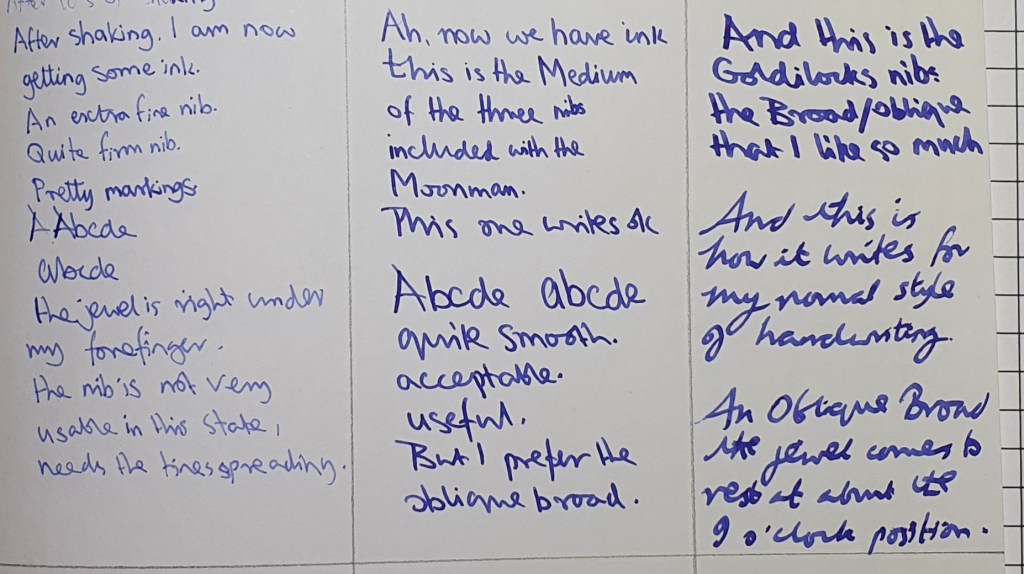 After 10's of shaking
After shaking. I am now
getting some ink.
An extra fine nib.
Quite firm nib.
Pretty markings
A Abcde
abcde
the jewel is right under
my forefinger.
the nib is not very
usable in this state,
needs the tines spreading.
Ah, now we have ink
this is the Medium
of the three nibs
included with the
Moonman.
This one writes ok
Abcde abcde
quite smooth.
acceptable.
useful.
But I prefer the
oblique broad.
And this is the
Goldilocks nibs
the Broad/oblique
that I like so much
And this is
how it writes for
my normal style
of handwriting.
An Oblique Broad
the jewel comes to
rest at about the
9 o'clock position.